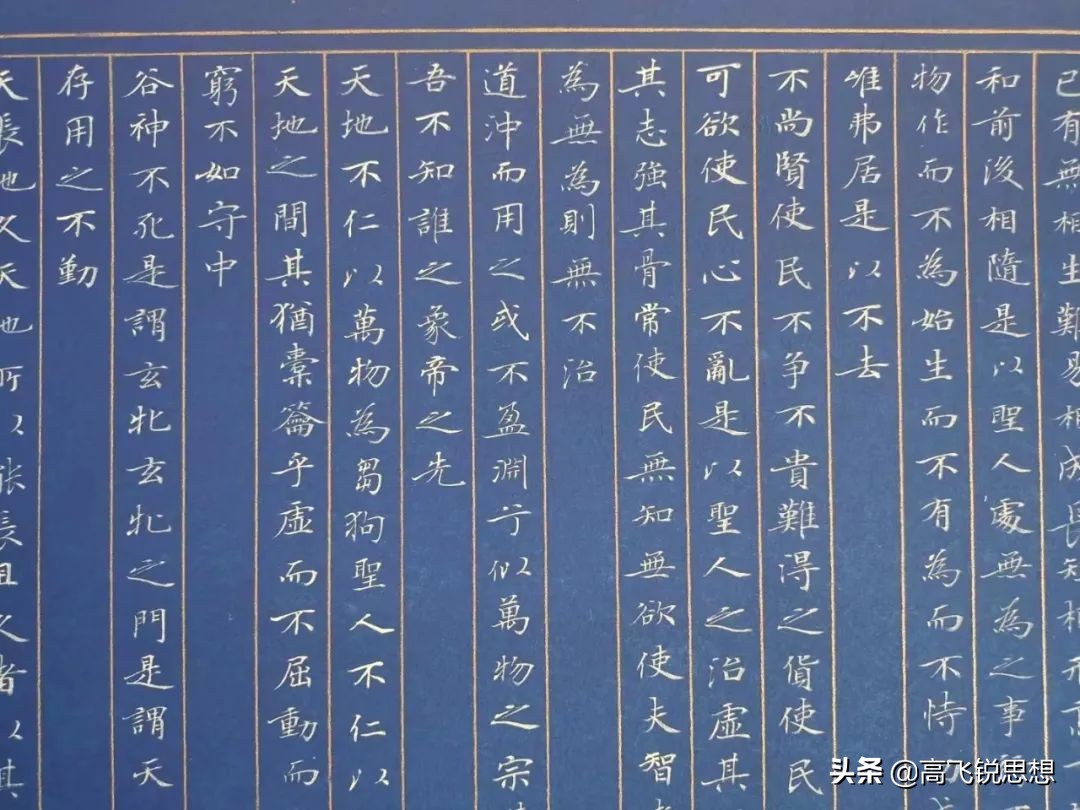 已有無相生難易相成長短相
和前後相隨是以聖人處無為之事
物作而不為始生而不有為而不恃
唯弗居是以不去
不尚賢使民不争不貴難得之貨使民
可欲使民心不亂是以聖人之治虛其
其志強其骨常使民無知無欲使夫智
為無為則無不治
道沖而用之或不盈淵兮似萬物之宗
吾不知誰之象帝之先
天地不仁以萬物為芻狗聖人不仁以
天地之間其猶橐籥乎虛而不屈動而
窮不如守中
谷神不死是謂玄牝玄牝之門是謂天
存用之不勤
天長地久天地所以能長且久者以其
头条 @高飞锐思想